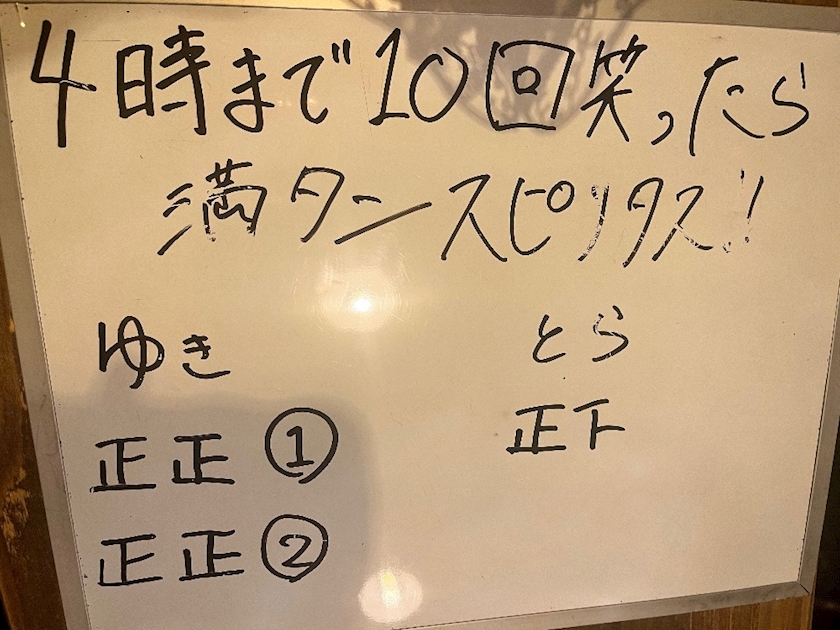 4時まで10回笑ったら
満タンスピリタス!!
ゆき
とら
正正①
正下
正正②